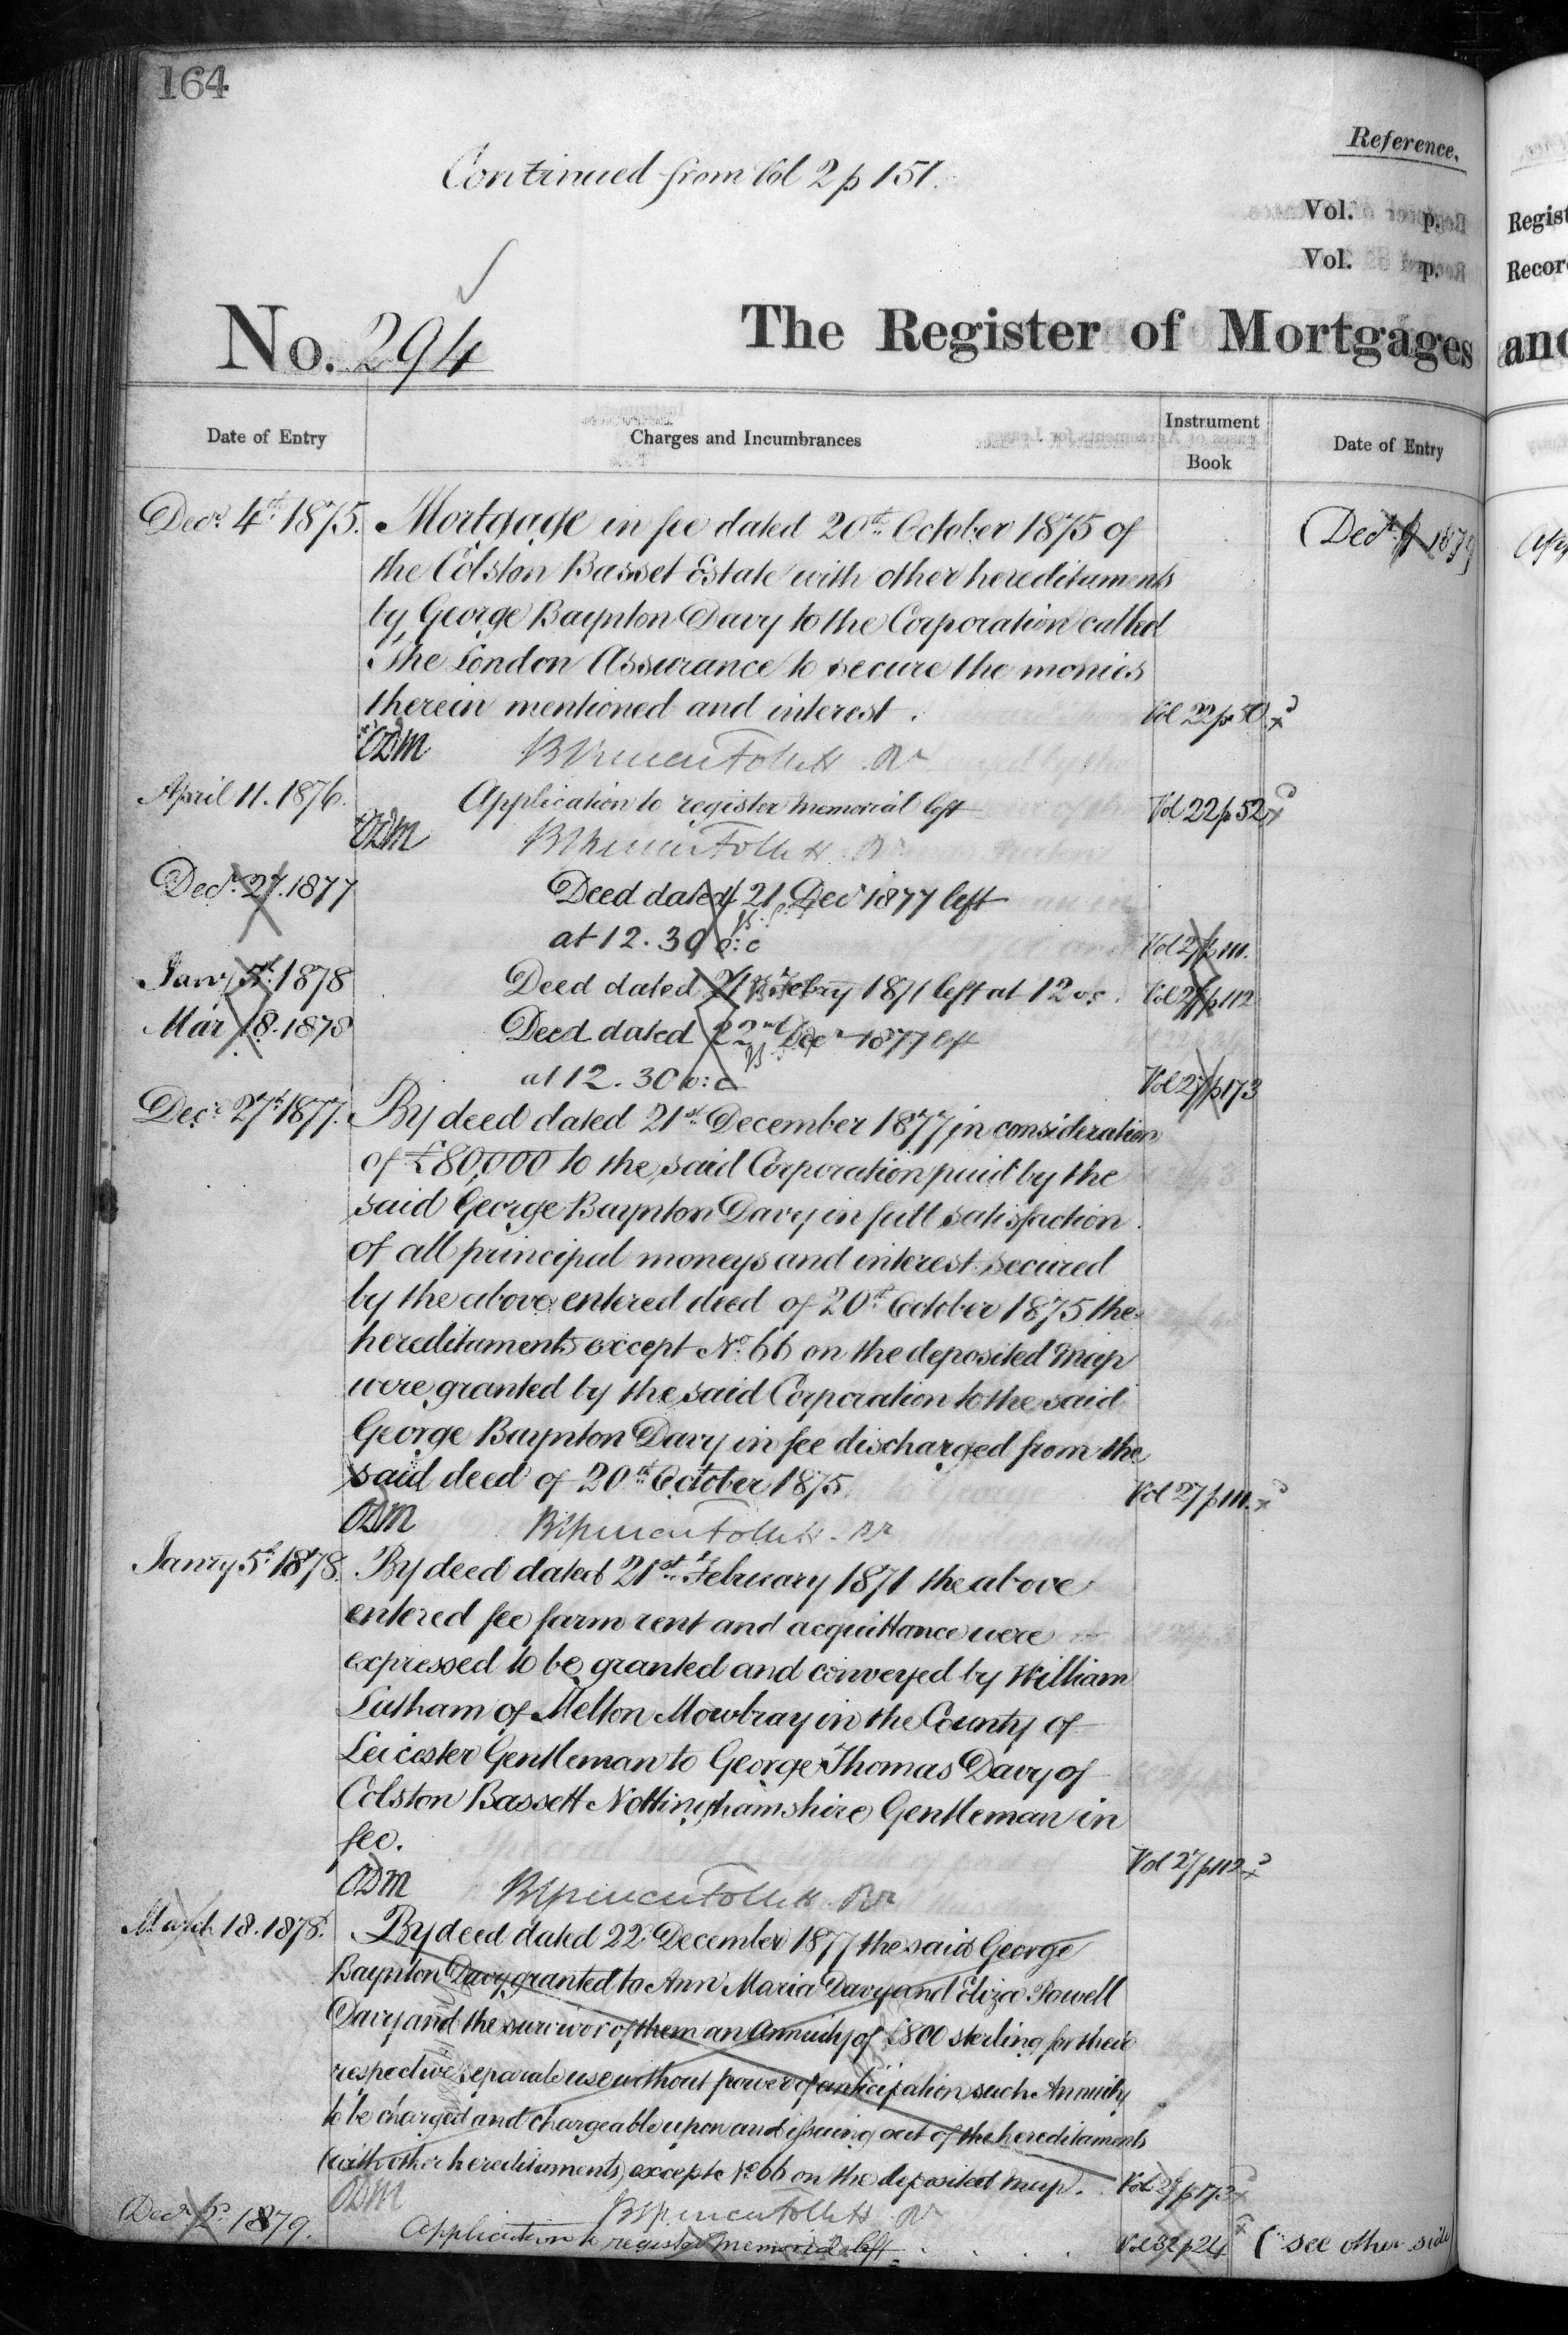 164
Reference.
Continued from Vol 2 p 151.
Vol. p.
Vol. p.
Regist
Recor
No. 294
The Register of Mortgages and
Date of Entry
Charges and Incumbrances
Instrument Book
Date of Entry
Decr. 4th. 1875. Mortgage in fee dated 20th. October 1875 of
the Colston Basset Estate with other hereditaments
by George Baynton Davy to the Corporation called
The London Assurance to secure the monies
therein mentioned and interest. Vol 22 p 50
ODM
Decr. 9 1879
April 11. 1876. Application to register Memorial left Vol 22 p 52
ODM
Decr. 27. 1877 Deed dated 21 Decr 1877 left
at 12.30 o:c Vol 27 p 111.
Jany 5th. 1878 Deed dated 21st Febry 1871 left at 12 o:c. Vol 27 p 112
Mar 18. 1878 Deed dated 22nd Decr 1877 left
at 12.30 o:c Vol 27 p 173
Decr. 27th 1877. By deed dated 21st. December 1877 in consideration
of £80,000 to the said Corporation paid by the
said George Baynton Davy in full satisfaction
of all principal moneys and interest secured
by the above entered deed of 20th. October 1875 the
hereditaments except No. 66 on the deposited Map
were granted by the said Corporation to the said
George Baynton Davy in fee discharged from the
said deed of 20th. October 1875. Vol 27 p 111.
ODM
Janry 5th 1878. By deed dated 21st. February 1871 the above
entered fee farm rent and acquittance were
expressed to be granted and conveyed by William
Latham of Melton Mowbray in the County of
Leicester Gentleman to George Thomas Davy of
Colston Bassett Nottinghamshire Gentleman in
fee. Vol 27 p 112
ODM
March 18. 1878. By deed dated 22d December 1877 the said George
Baynton Davy granted to Ann Maria Davy and Eliza Powell
Davy and the survivor of them an Annuity of £800 sterling for their
respective separate use without power of anticipation such Annuity
to be charged and chargeable upon and issuing out of the hereditaments
(with other hereditaments) except No 66 on the deposited map. Vol 27 p 173
ODM
Decr 1879. Application to register memorial left Vol 32 p 24 (see other side